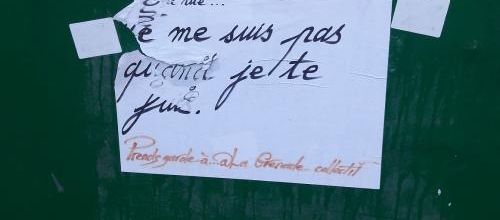 rue...
e me suis pas
quand je te
Prends garde à... aLa Grenade collectif